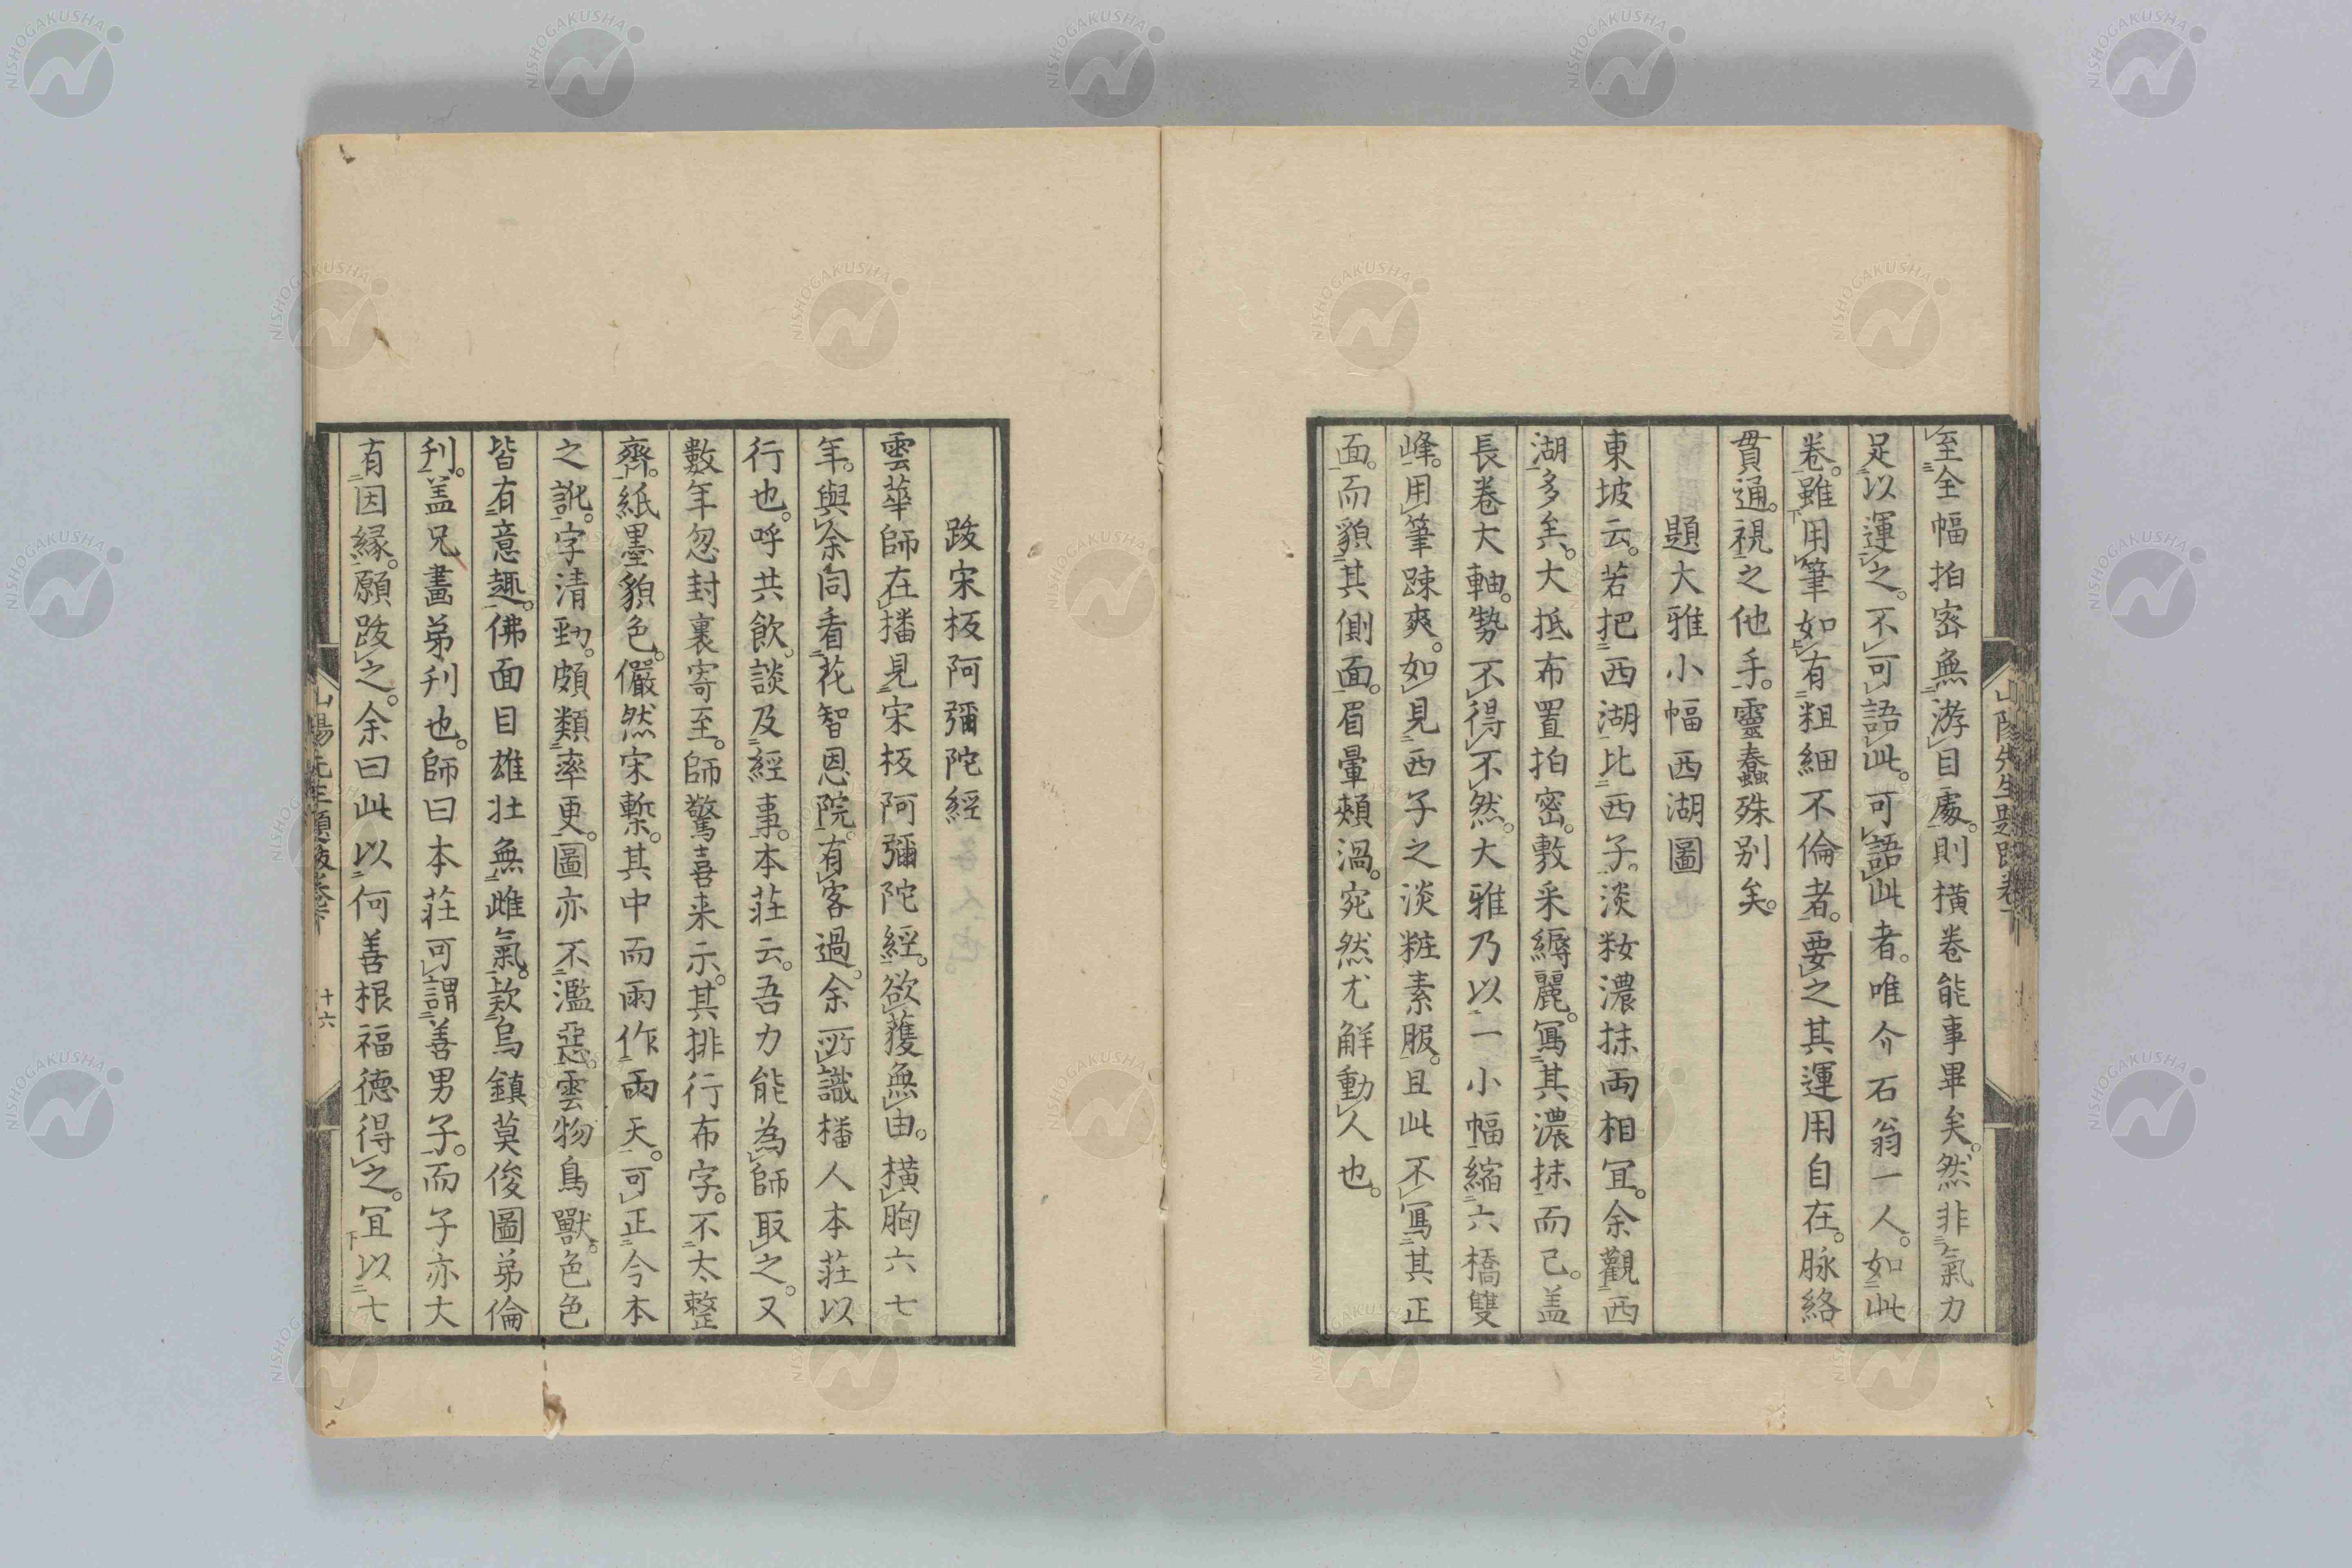 至全幅拍密無游目處。則橫卷能事畢矣。然非氣力
足以運之。不可語此。可語此者。唯介石翁一人。如此
卷。雖用筆如有粗細不倫者。要之其運用自在。脉絡
貫通。視之他手。靈蠢殊別矣。
題大雅小幅西湖圖
東坡云。若把西湖比西子。淡粧濃抹両相宜。余觀西
湖多矣。大抵布置拍密。敷采縟麗。寫其濃抹而已。盖
長卷大軸。勢不得不然。大雅乃以一小幅縮六橋雙
峰。用筆踈爽。如見西子之淡粧素服。且此不寫其正
面。而貌其側面。眉暈頰渦。宛然尤解動人也。
跋宋板阿彌陀經
雲華師在播見宋板阿彌陀經。欲獲無由。橫胸六七
年。與余同看花智恩院。有客過。余所識播人本莊以
行也。呼共飲。談及經事。本莊云。吾力能為師取之。又
數年忽封裹寄至。師驚喜来示。其排行布字。不太整
齊。紙墨貌色。儼然宋槧。其中而雨作兩天。可正今本
之訛。字清勁。頗類率更。圖亦不濫惡。雲物鳥獸。色色
皆有意趣。佛面目雄壯無雌氣。款烏鎮莫俊圖弟倫
刋。盖兄畵弟刋也。師曰本莊可謂善男子。而子亦大
有因縁。願跋之。余曰此以何善根福德得之。宜以七
山陽先生題跋卷下
十六
NISHOGAKUSHA